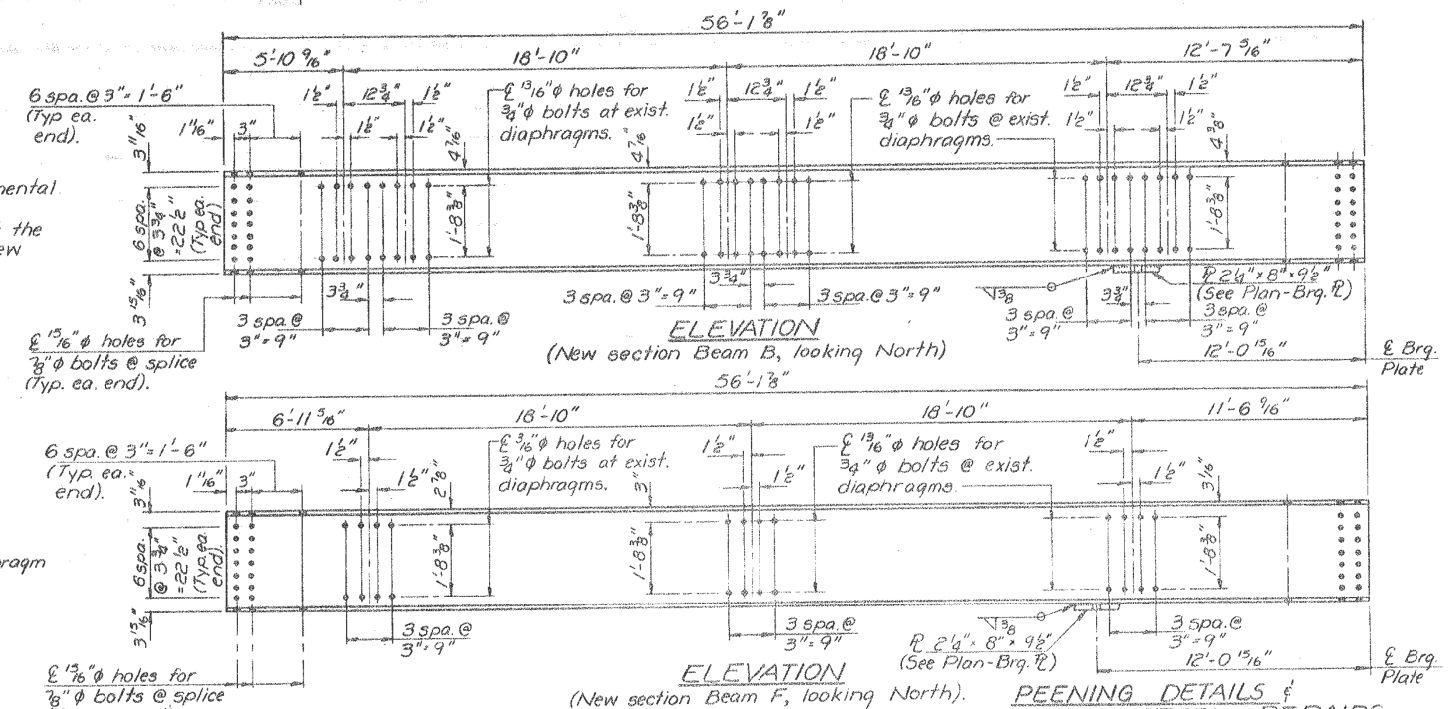 56'-1⅞"
5'-10 9/16"
18'-10"
18'-10"
12'-7 5/16"
6 spa. @ 3" = 1'-6"
(Typ ea.
end).
1 1/16"
3"
1½"
12¾"
1½"
1½"
1½"
℄ 13/16"φ holes for
¾"φ bolts at exist.
diaphragms.
1½"
12¾"
1½"
1½"
1½"
℄ 13/16"φ holes for
¾"φ bolts @ exist.
diaphragms.
1½"
12¾"
1½"
1½"
1½"
3 11/16"
4 7/16"
4 7/16"
4 3/8"
mental
the
ew
6 spa.
@ 3¾"
=22½"
(Typ. ea.
end)
1'-8⅜"
1'-8⅜"
1'-8⅜"
3 15/16"
3¾"
3¾"
3¾"
3 spa. @
3"=9"
3 spa. @
3"=9"
3 spa. @ 3"=9"
3 spa. @ 3"=9"
3/8
3 spa. @
3"=9"
3 spa. @
3"=9"
℄ 2¼"×8"×9½"
(See Plan-Brg. ℄)
12'-0 15/16"
℄ Brg.
Plate
℄ 15/16"φ holes for
⅞"φ bolts @ splice
(Typ. ea. end).
ELEVATION
(New section Beam B, looking North)
56'-1⅞"
6'-11 5/16"
18'-10"
18'-10"
11'-6 9/16"
6 spa. @ 3"=1'-6"
(Typ. ea.
end).
1 1/16"
3"
1½"
1½"
℄ 3/16"φ holes for
¾"φ bolts at exist.
diaphragms.
1½"
1½"
℄ 13/16"φ holes for
¾"φ bolts @ exist.
diaphragms.
1½"
1½"
3 11/16"
2⅞"
3"
3 1/16"
6 spa.
@ 3¾"
=22½"
(Typ. ea.
end)
1'-8⅜"
1'-8⅜"
1'-8⅜"
ragm
3 15/16"
3 spa. @
3"=9"
3 spa. @
3"=9"
3/8
℄ 2¼"×8"×9½"
(See Plan-Brg. ℄)
3 spa. @
3"=9"
12'-0 15/16"
℄ Brg.
Plate
℄ 15/16"φ holes for
⅞"φ bolts @ splice
ELEVATION
(New section Beam F, looking North).
PEENING DETAILS &
REPAIRS